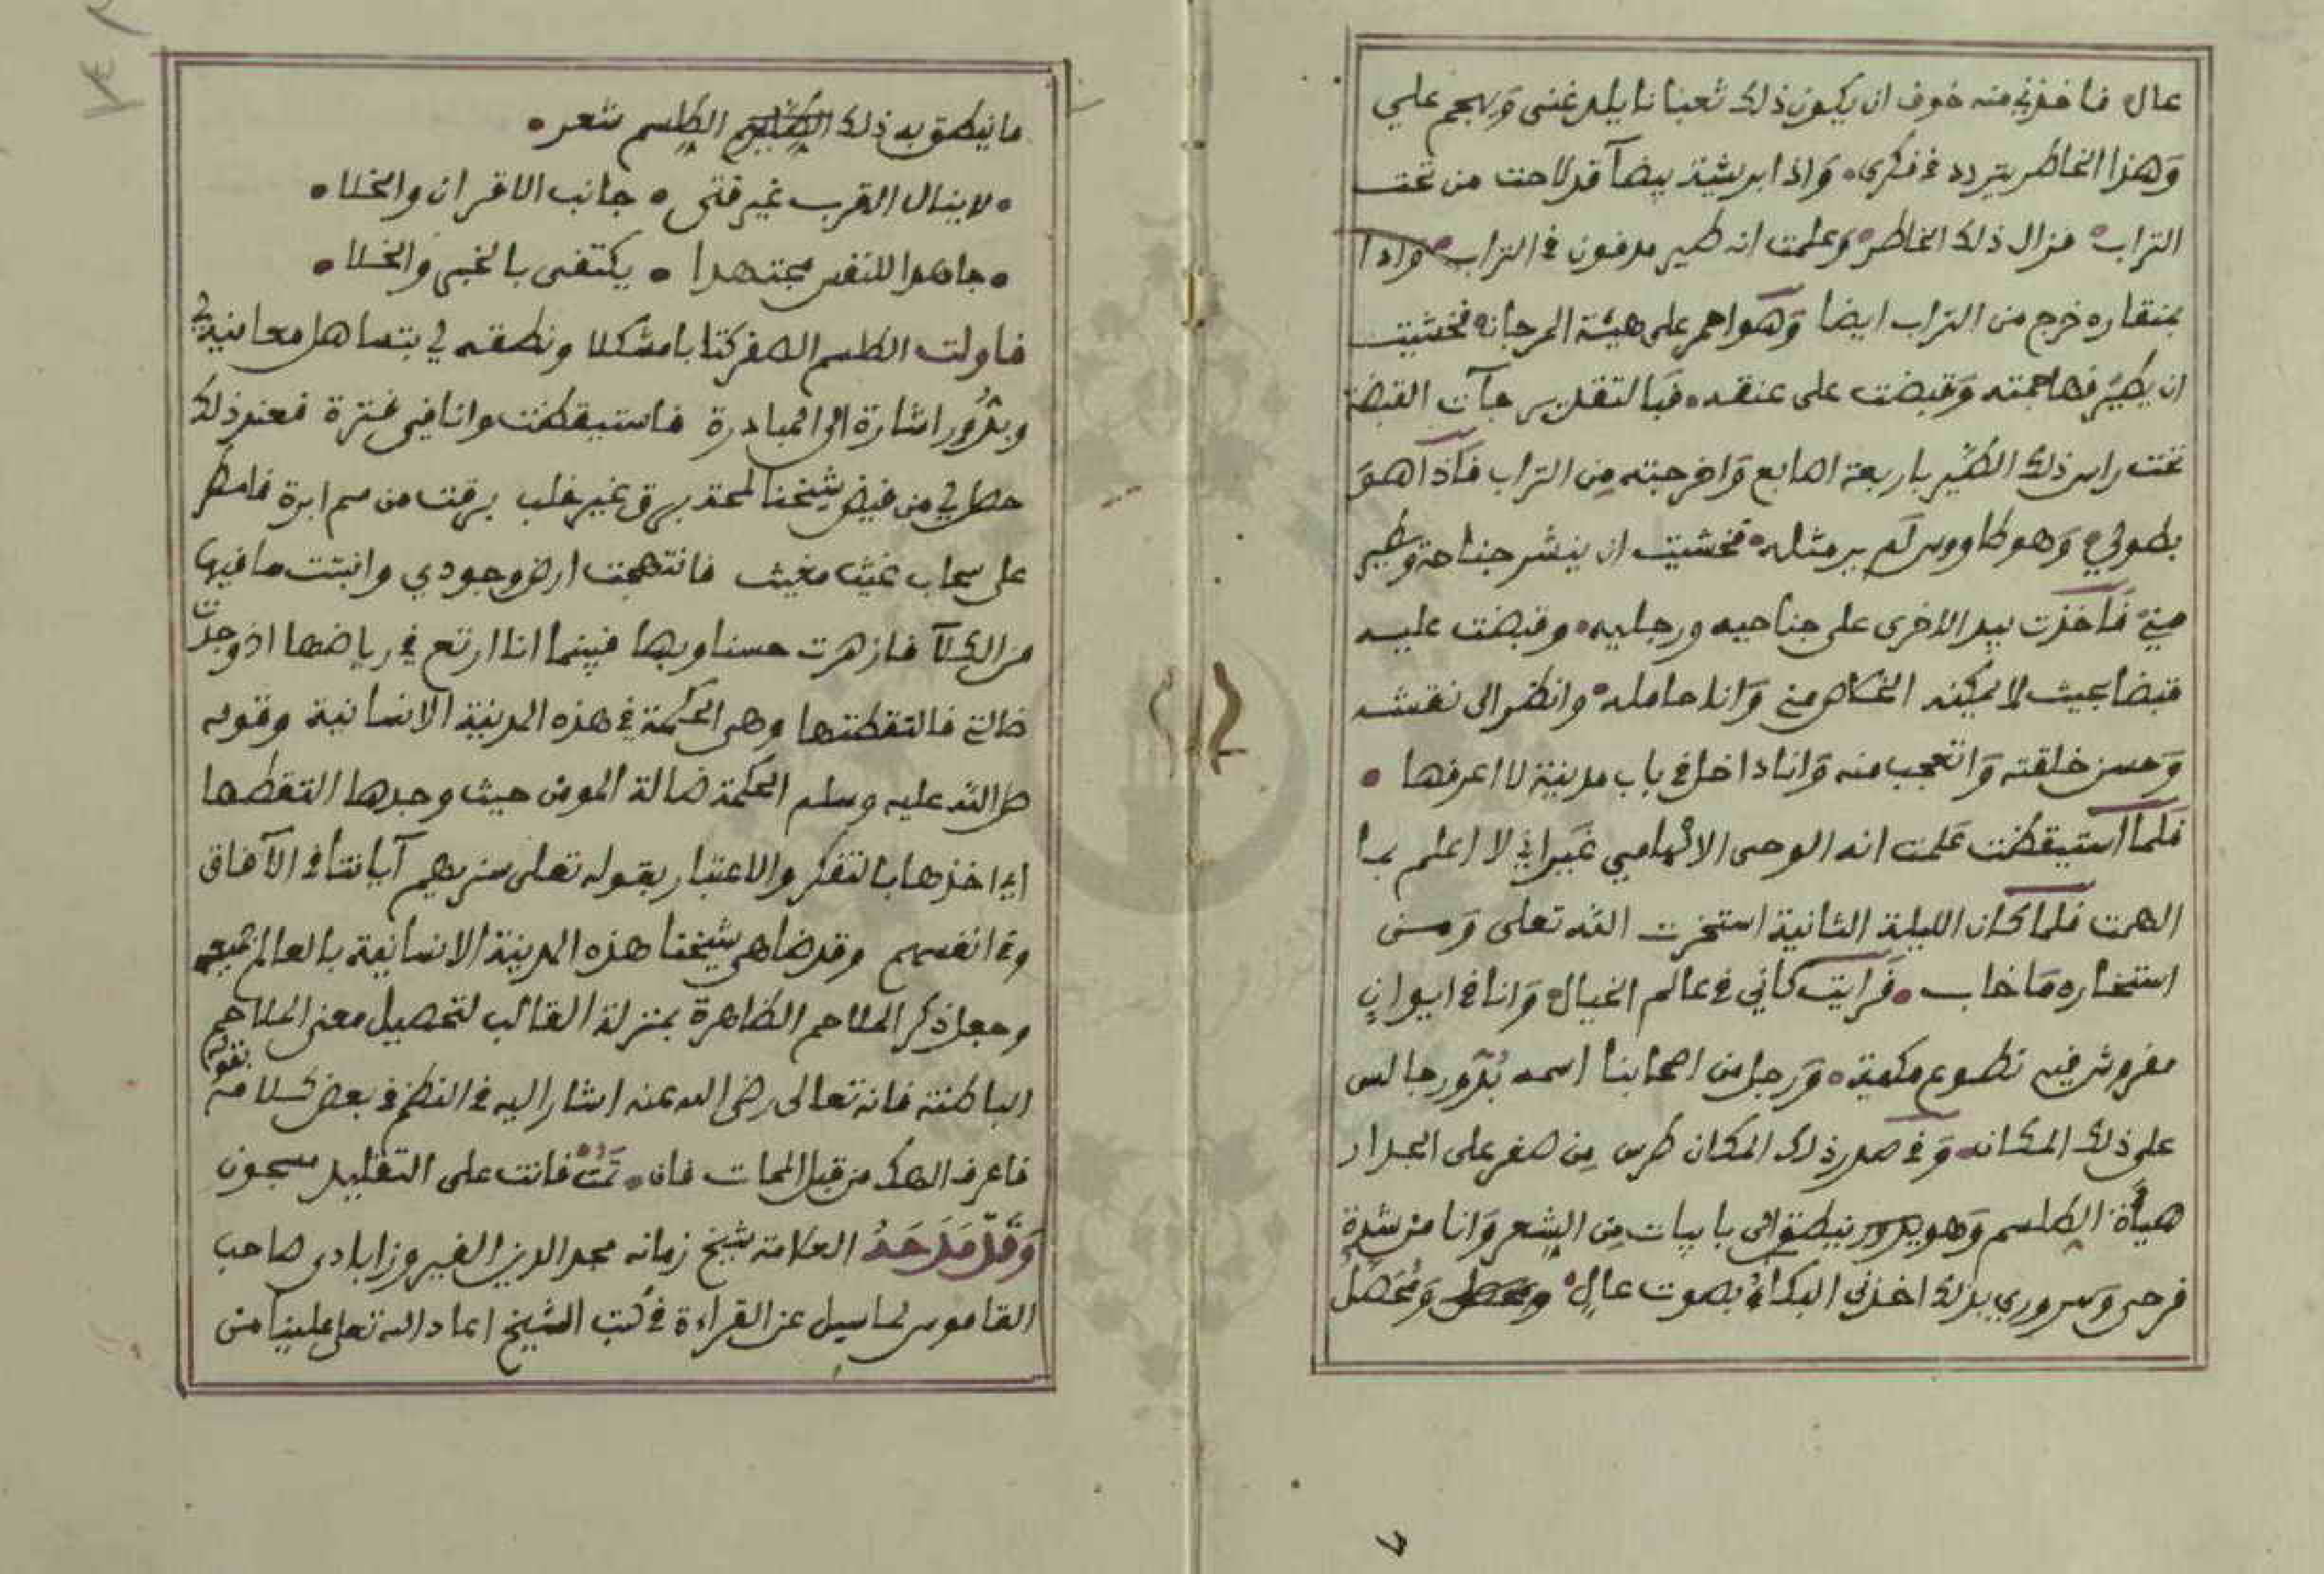 عال فاخذني منه خوف ان يكون ذلك ثعبانا يلدغني ويهجم علي
وهذا الخاطر يتردد في فكري وإذا بريشة بيضآ قد لاحت من تحت
التراب فزال ذلك الخاطر وعلمت انه طير مدفون في التراب واذا
بمنقاره خرج من التراب ايضا وهو احمر على هيئة المرجانه فخشيت
ان يطير فهاجمته وقبضت على عنقه فبالتقدير جآت القبضة
تحت راس ذلك الطير باربعة اصابع واخرجته من التراب فاذآ هو
بطولي وهو طاووس لم ير مثله فخشيت ان ينشر جناحه ويطير
مني فاخذت بيد الاخرى على جناحيه ورجليه وقبضت عليه
قبضا بحيث لا يمكنه الخلاص مني وانا حامله وانظر الى نقشه
وحسن خلقته واتعجب منه وانا داخل في باب مدينة لا اعرفها
فلما استيقظت علمت انه الوحى الالهامي غير اني لا اعلم بما
الهمت فلما كان الليلة الثانية استخرت الله تعلى ومن
استخاره ما خاب فرايت كاني في عالم الخيال وانا في ايوان
مفروش فيه نطوع مكية ورجل من اصحابنا اسمه بدور جالس
على ذلك المكان وفي صدر ذلك المكان طرس من صفر على الجدار
هيأة الطلسم وهو ينطق الى بابيات من الشعر وانا من شدة
فرحى وسروري بذلك اخذنى البكاء بصوت عال ومحصل
ما نيطق به ذلك الطلسم شعر
لا ينال القرب غير فتى جانب الاقران والخلا
جاهدا للنفس مجتهدا يكتفى بالخبز والخلا
فاولت الطلسم الصفر كتابا مشكلا ونطقه لي بتساهل معانيه لي
وبدور اشارة الى المبادرة فاستيقظت وانا في فترة فعند ذلك
حصل لي من فيض شيخنا الممد برق غير خلب برقت من سم ابرة فامطر
على سحاب غيث مغيث فانتهجت ارض وجودي وانبتت ما فيها
من الكلآ فازهرت حسنا وبها فبينما انا ارتع في رياضها اذ وجدت
ضالتي فالتقطتها وهى الحكمة في هذه المدينة الانسانية وقوله
صلى الله عليه وسلم الحكمة ضالة المومن حيث وجدها التقطها
اي اخذها بالتفكر والاعتبار بقوله تعلى سنريهم آياتنا في الآفاق
وفي انفسهم وقد ضاهى شيخنا هذه المدينة الانسانية بالعالم جميعه
وجعل ذكر الملاحم الظاهرة بمنزلة القالب لتحصيل معنى الملاحم
الباطنة فانه تعالى رضى الله عنه اشار اليه في النظم في بعض كلامه بقوله
فاعرف الهك من قبل الممات فان تمت فانت على التقليد مسجون
وقد مدحه العلامة شيخ زمانه مجد الدين الفيروزابادى صاحب
القاموس لما سيل عن القراءة في كتب الشيخ اعاد الله تعلى علينا من